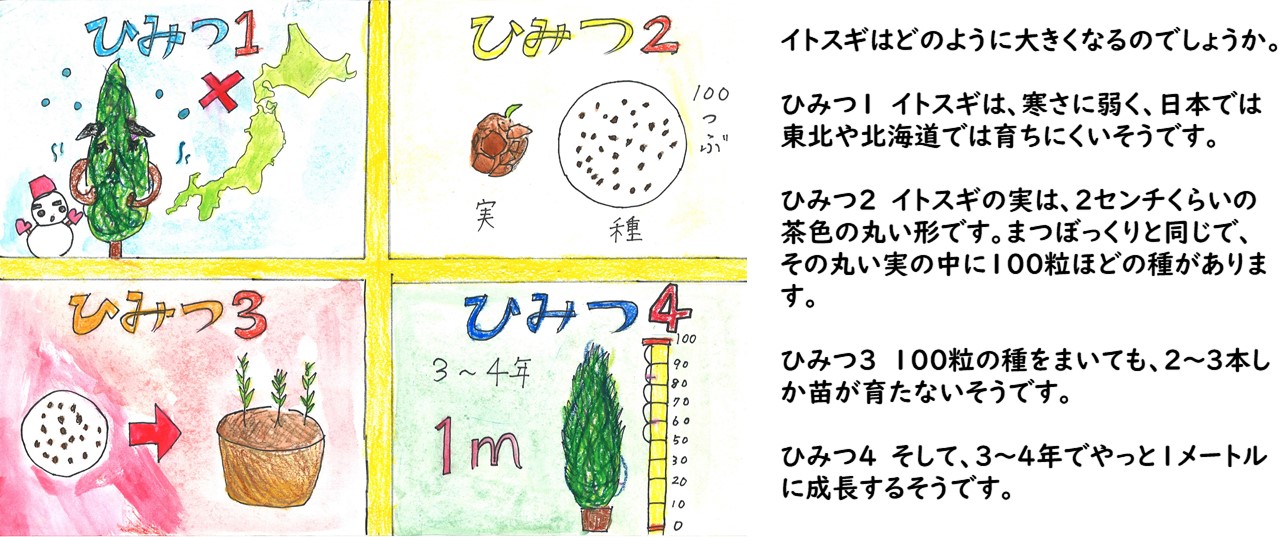 ひみつ1
ひみつ2
100
つ
ぶ
実
種
ひみつ3
ひみつ4
3～4年
1m
100
90
80
70
60
50
30
20
10
0
イトスギはどのように大きくなるのでしょうか。
ひみつ1 イトスギは、寒さに弱く、日本では
東北や北海道では育ちにくいそうです。
ひみつ2 イトスギの実は、2センチくらいの
茶色の丸い形です。まつぼっくりと同じで、
その丸い実の中に100粒ほどの種がありま
す。
ひみつ3 100粒の種をまいても、2～3本し
か苗が育たないそうです。
ひみつ4 そして、3～4年でやっと1メートル
に成長するそうです。